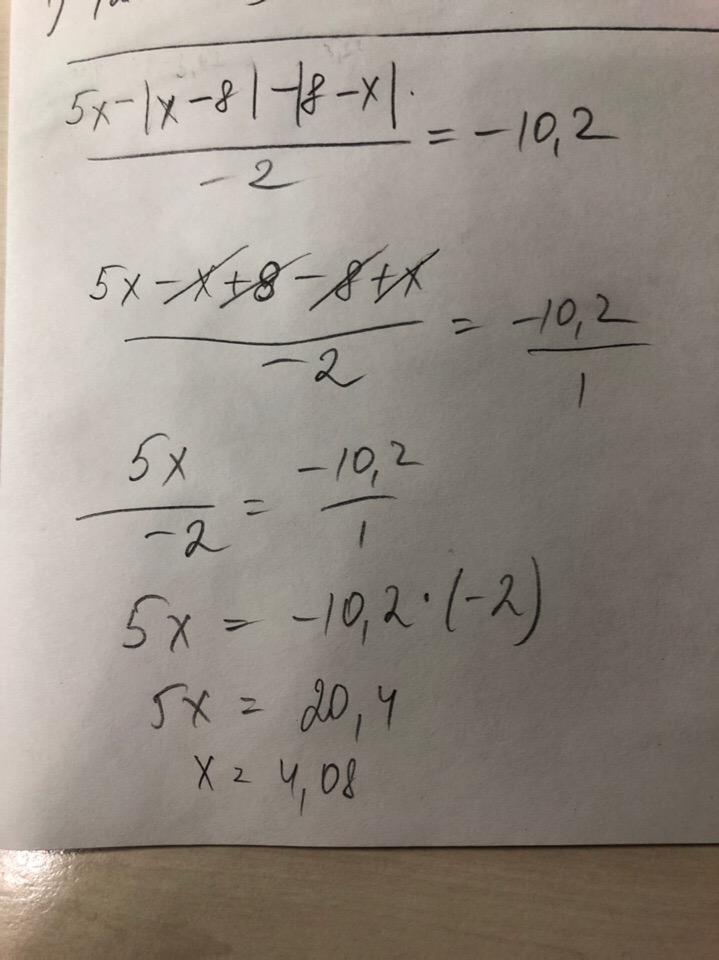 5x-|x-8|-|8-x|. / -2 = -10,2
5x-x+8-8+x / -2 = -10,2 / 1
5x / -2 = -10,2 / 1
5x = -10,2·(-2)
5x = 20,4
x = 4,08